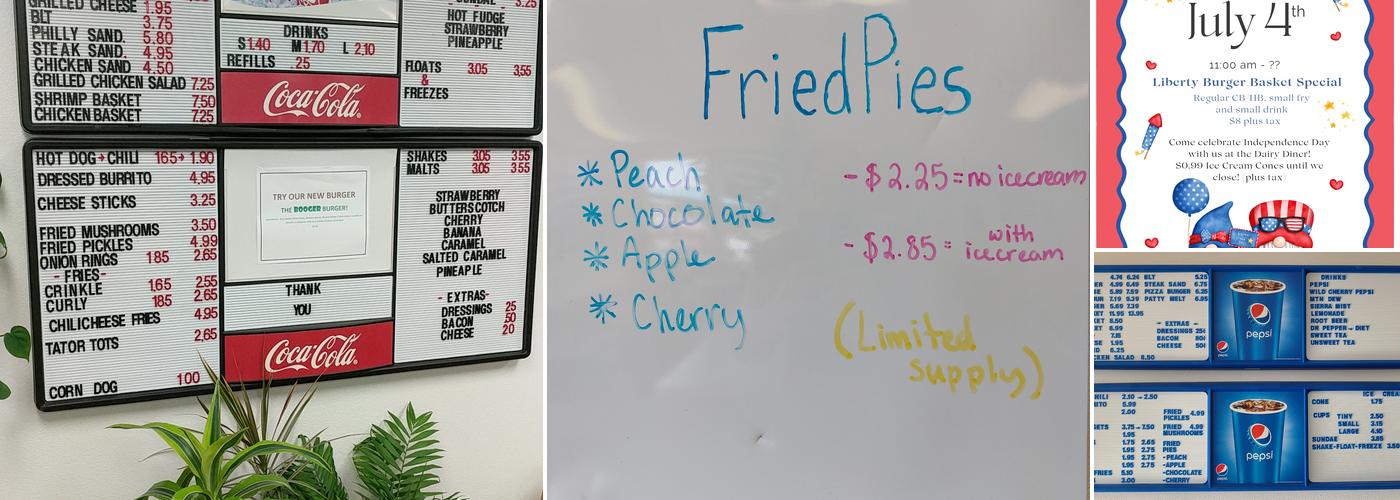 GRILLED CHEESE 1.95
BLT 3.75
PHILLY SAND. 5.80
STEAK SAND. 4.95
CHICKEN SAND 4.50
GRILLED CHICKEN SALAD 7.25
SHRIMP BASKET 7.50
CHICKEN BASKET 7.25
DRINKS
S 1.40 M 1.70 L 2.10
REFILLS .25
Coca-Cola
SUNDAE 3.25
HOT FUDGE
STRAWBERRY
PINEAPPLE
FLOATS 3.05 3.55
&
FREEZES
HOT DOG→CHILI 165→ 1.90
DRESSED BURRITO 4.95
CHEESE STICKS 3.25
FRIED MUSHROOMS 3.50
FRIED PICKLES 4.99
ONION RINGS 185 2.65
-FRIES-
CRINKLE 1.65 2.55
CURLY 185 2.65
CHILICHEESE FRIES 4.95
TATOR TOTS 2,65
CORN DOG 100
TRY OUR NEW BURGER
THE BOOGER BURGER!
THANK
YOU
Coca-Cola
SHAKES 3.05 3.55
MALTS 3.05 3.55
STRAWBERRY
BUTTERSCOTCH
CHERRY
BANANA
CARAMEL
SALTED CARAMEL
PINEAPLE
-EXTRAS-
DRESSINGS 25
BACON 50
CHEESE 20
Fried Pies
* Peach
* Chocolate
* Apple
* Cherry
- $2.25 = no icecream
- $2.85 = with icecream
(Limited
supply)
July 4th
11:00 am - ??
Liberty Burger Basket Special
Regular CB/HB, small fry
and small drink
$8 plus tax
Come celebrate Independence Day
with us at the Dairy Diner!
$0.99 Ice Cream Cones until we
close! (plus tax)
4.74 6.24 BLT 5.25
4.99 6.49 STEAK SAND 6.75
5.89 7.59 PIZZA BURGER 6.25
7.19 9.39 PATTY MELT 6.95
5.69 7.39
11.95 13.95
8.50
6.99
7.15
1.95
6.25
SALAD 8.50
- EXTRAS -
DRESSINGS 25¢
BACON 80¢
CHEESE 50¢
pepsi
DRINKS
PEPSI
WILD CHERRY PEPSI
MTN DEW
SIERRA MIST
LEMONADE
ROOT BEER
DR PEPPER→DIET
SWEET TEA
UNSWEET TEA
2.10→2.50
5.99
2.00
3.75→7.50
1.95
1.75 2.65
1.95 2.75
1.95 2.75
FRIES 5.10
3.00
FRIED 4.99
PICKLES
FRIED 4.99
MUSHROOMS
FRIED
PIES
-PEACH
-APPLE
-CHOCOLATE
-CHERRY
pepsi
ICE
CONE 1.75
CUPS TINY 2.50
SMALL 3.15
LARGE 4.10
SUNDAE 3.85
SHAKE-FLOAT-FREEZE 3.50